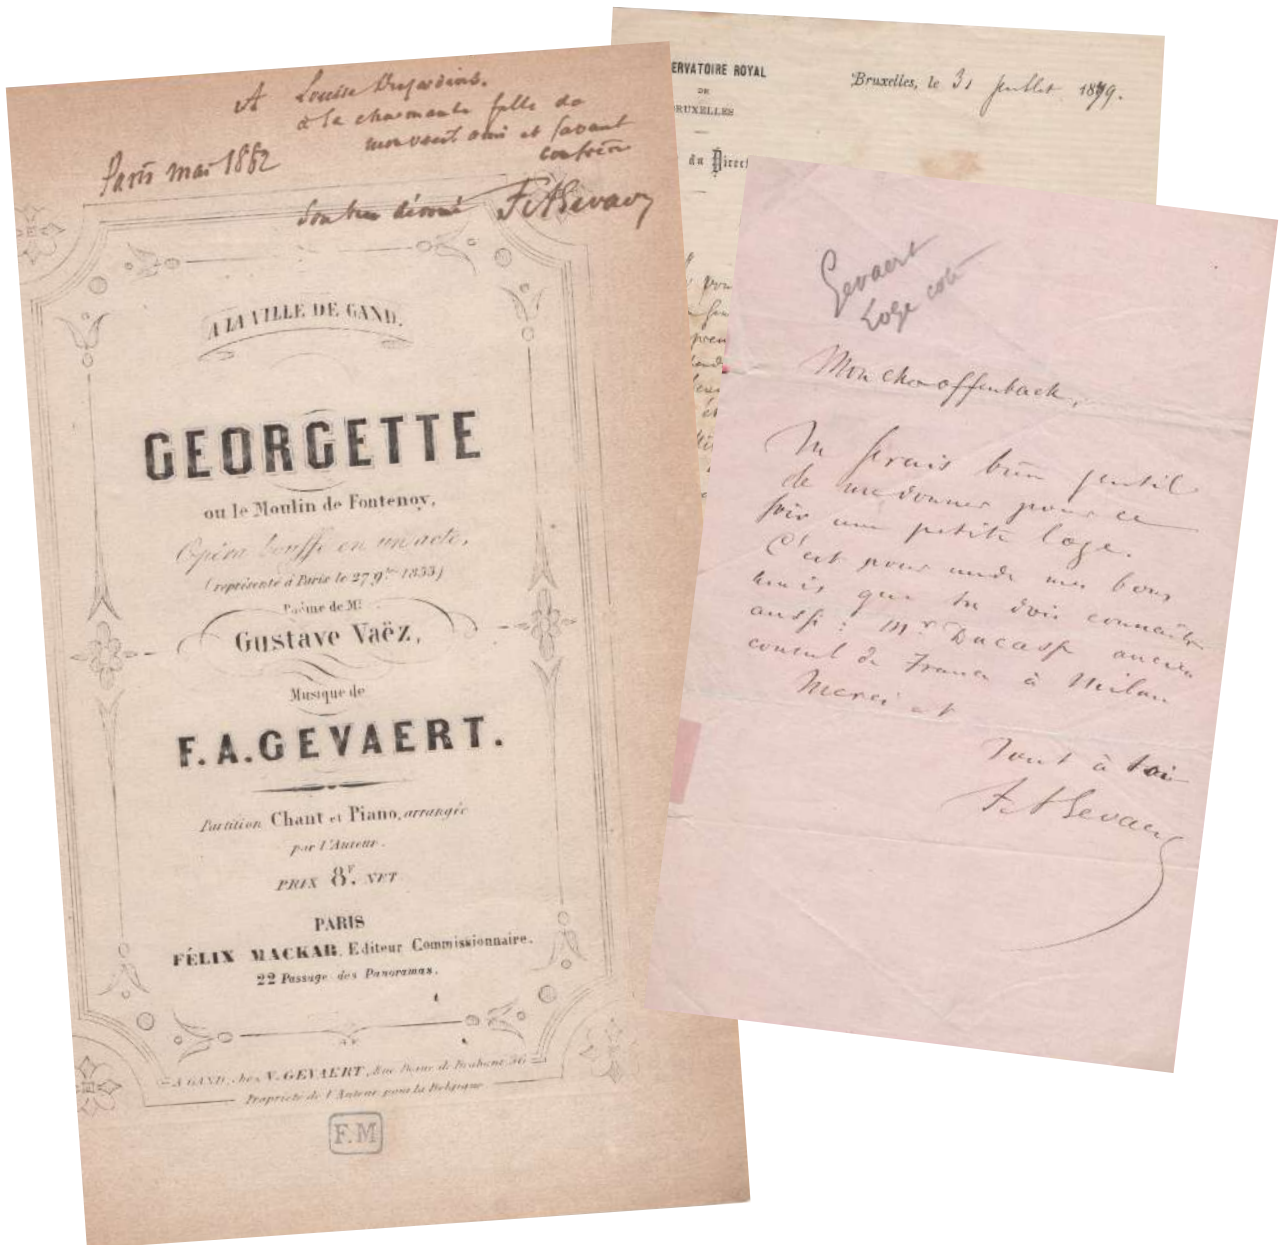 A Louise Desjardins.
à la charmante fille de
mon vieil ami et savant
confrère
Paris mai 1882
Son bien dévoué FAGevaert
A LA VILLE DE GAND.
GEORGETTE
ou le Moulin de Fontenoy,
Opéra bouffe en un acte,
(représenté à Paris le 27 9bre 1853)
Poème de Mr.
Gustave Vaëz,
Musique de
F. A. GEVAERT.
Partition Chant et Piano, arrangée
par l'Auteur.
PRIX 8f. NET
PARIS
FÉLIX MACKAR, Editeur Commissionnaire.
22 Passage des Panoramas.
A GAND, chez V. GEVAERT, Rue Digue de Brabant 36
Propriété de l'Auteur pour la Belgique
F.M
ERVATOIRE ROYAL
DE
BRUXELLES
Bruxelles, le 31 juillet 1879.
du Direct
pour
Gevaert
Loge coté
Mon cher Offenbach,
Tu serais bien gentil
de me donner pour ce
soir une petite loge.
C'est pour un de mes bons
amis que tu dois connaître
aussi : Mr Ducasse ancien
consul de France à Milan
Merci et
Tout à toi
FAGevaert